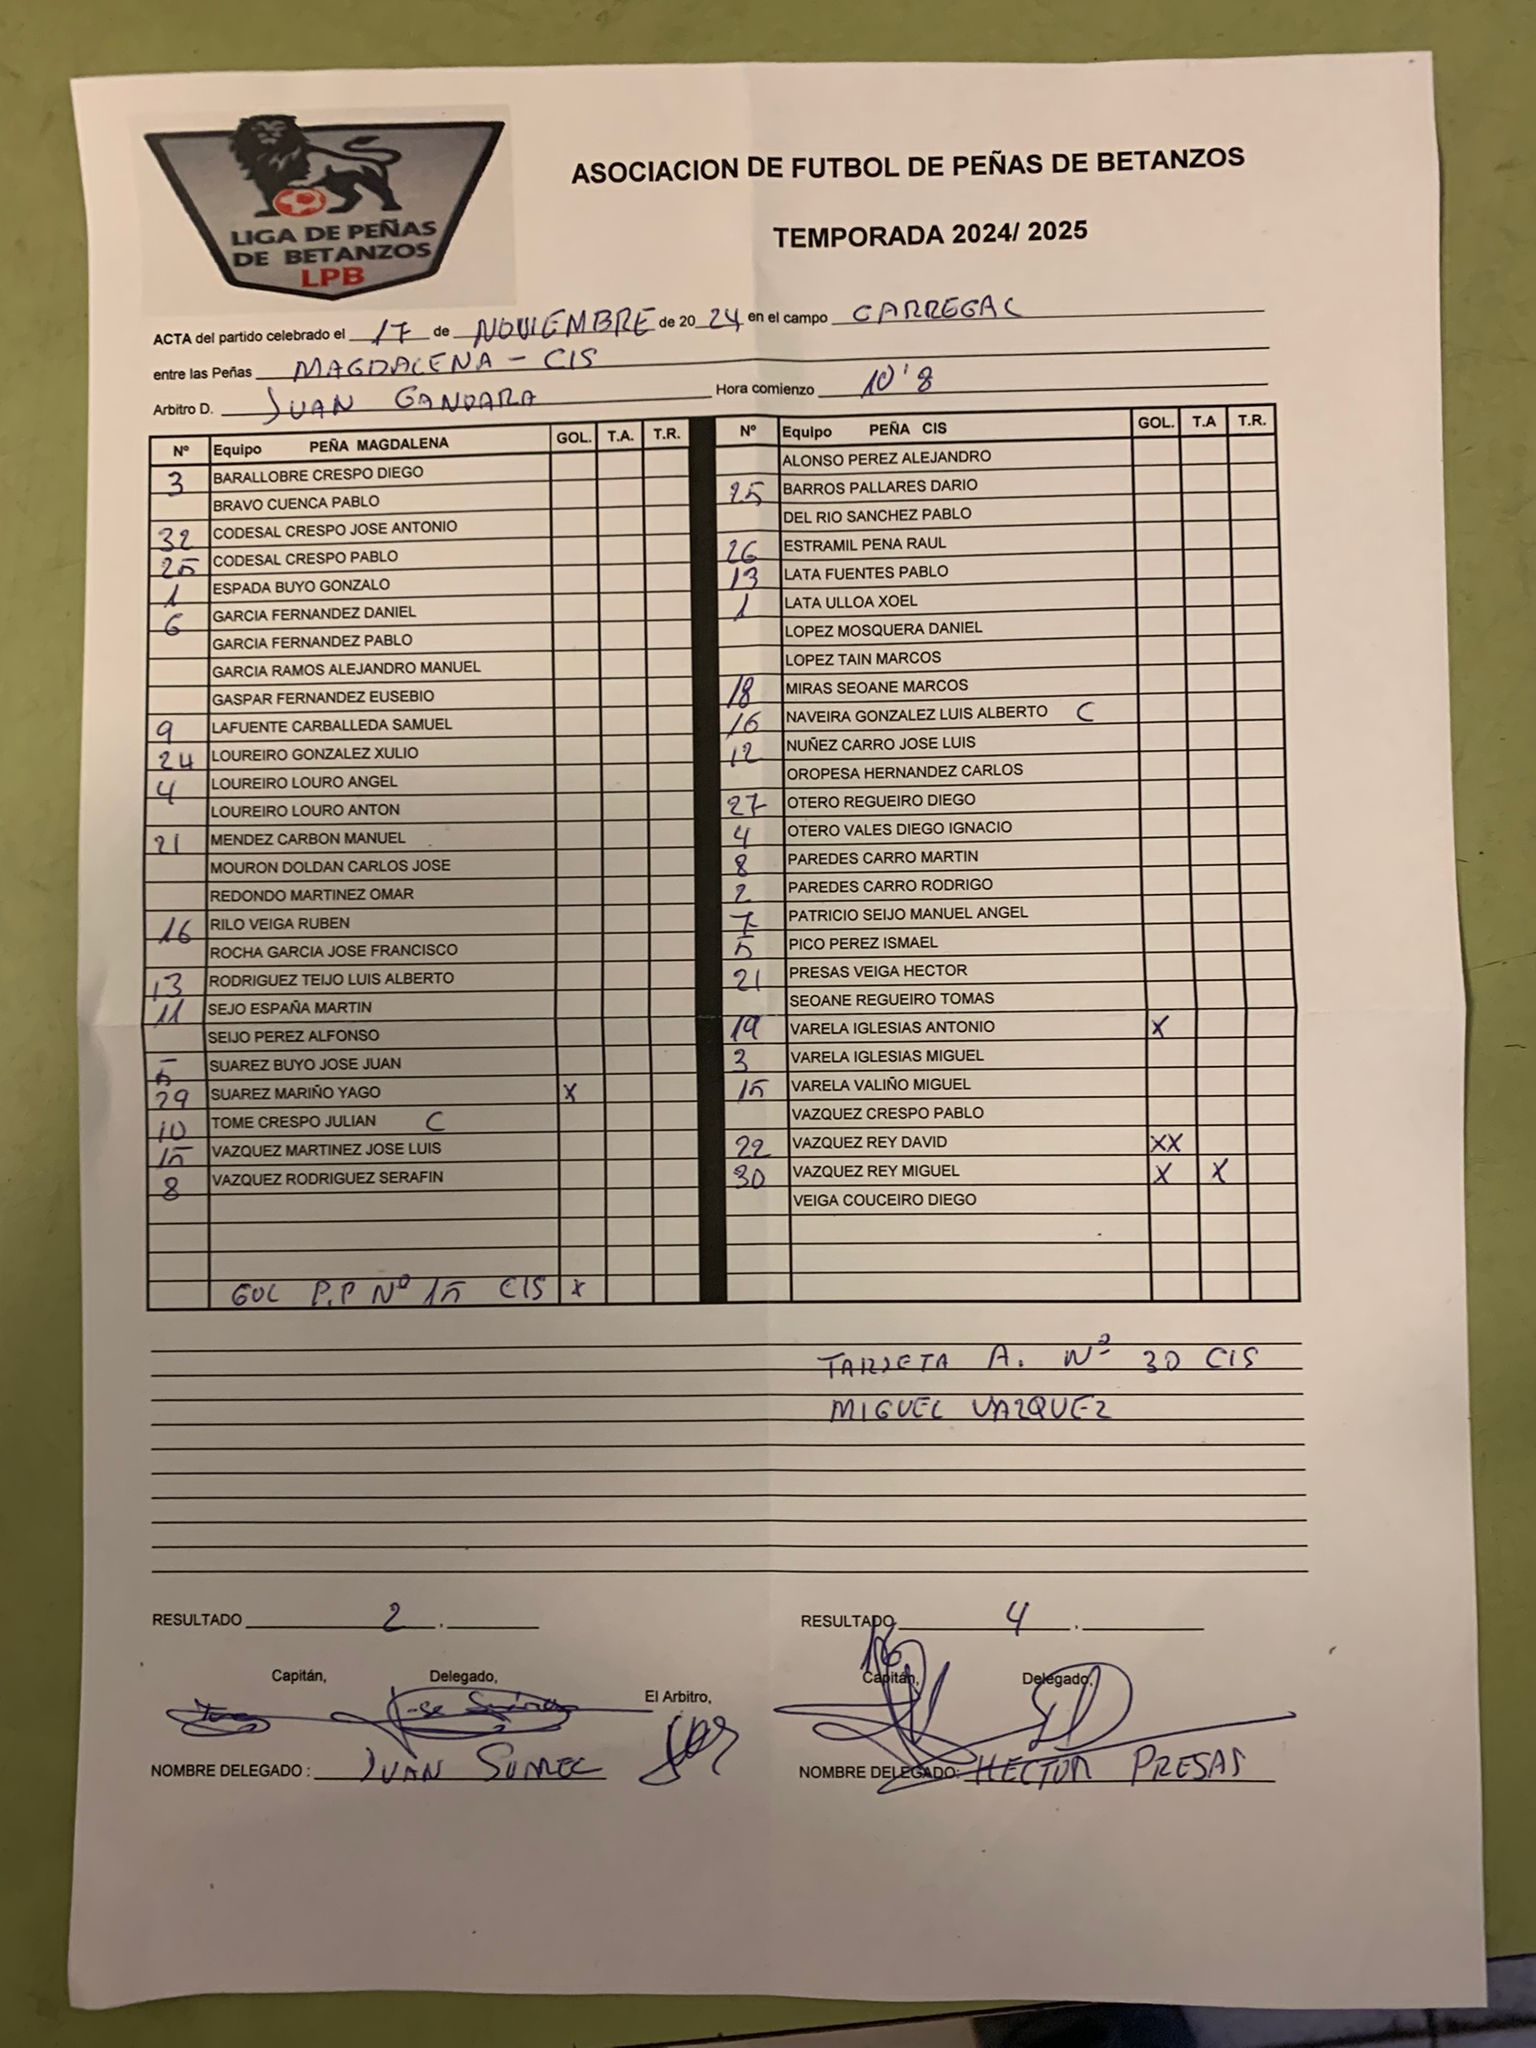 LIGA DE PEÑAS
DE BETANZOS
LPB
ASOCIACION DE FUTBOL DE PEÑAS DE BETANZOS
TEMPORADA 2024/ 2025
ACTA del partido celebrado el 17 de NOVIEMBRE de 20 24 en el campo CARREGAL
entre las Peñas MAGDALENA - CIS
Arbitro D. JUAN GANDARA Hora comienzo 10'8
Nº Equipo PEÑA MAGDALENA GOL. T.A. T.R.
3 BARALLOBRE CRESPO DIEGO
BRAVO CUENCA PABLO
32 CODESAL CRESPO JOSE ANTONIO
25 CODESAL CRESPO PABLO
1 ESPADA BUYO GONZALO
6 GARCIA FERNANDEZ DANIEL
GARCIA FERNANDEZ PABLO
GARCIA RAMOS ALEJANDRO MANUEL
GASPAR FERNANDEZ EUSEBIO
9 LAFUENTE CARBALLEDA SAMUEL
24 LOUREIRO GONZALEZ XULIO
4 LOUREIRO LOURO ANGEL
LOUREIRO LOURO ANTON
21 MENDEZ CARBON MANUEL
MOURON DOLDAN CARLOS JOSE
REDONDO MARTINEZ OMAR
16 RILO VEIGA RUBEN
ROCHA GARCIA JOSE FRANCISCO
13 RODRIGUEZ TEIJO LUIS ALBERTO
11 SEJO ESPAÑA MARTIN
SEIJO PEREZ ALFONSO
5 SUAREZ BUYO JOSE JUAN
29 SUAREZ MARIÑO YAGO X
10 TOME CRESPO JULIAN C
15 VAZQUEZ MARTINEZ JOSE LUIS
8 VAZQUEZ RODRIGUEZ SERAFIN
GOL P.P Nº 15 CIS X
Nº Equipo PEÑA CIS GOL. T.A T.R.
ALONSO PEREZ ALEJANDRO
25 BARROS PALLARES DARIO
DEL RIO SANCHEZ PABLO
26 ESTRAMIL PENA RAUL
13 LATA FUENTES PABLO
1 LATA ULLOA XOEL
LOPEZ MOSQUERA DANIEL
LOPEZ TAIN MARCOS
18 MIRAS SEOANE MARCOS
16 NAVEIRA GONZALEZ LUIS ALBERTO C
12 NUÑEZ CARRO JOSE LUIS
OROPESA HERNANDEZ CARLOS
27 OTERO REGUEIRO DIEGO
4 OTERO VALES DIEGO IGNACIO
8 PAREDES CARRO MARTIN
2 PAREDES CARRO RODRIGO
7 PATRICIO SEIJO MANUEL ANGEL
5 PICO PEREZ ISMAEL
21 PRESAS VEIGA HECTOR
SEOANE REGUEIRO TOMAS
19 VARELA IGLESIAS ANTONIO X
3 VARELA IGLESIAS MIGUEL
15 VARELA VALIÑO MIGUEL
VAZQUEZ CRESPO PABLO
22 VAZQUEZ REY DAVID XX
30 VAZQUEZ REY MIGUEL X X
VEIGA COUCEIRO DIEGO
TARJETA A. Nº 30 CIS
MIGUEL VAZQUEZ
RESULTADO 2 .
RESULTADO 4 .
Capitán, Delegado, El Arbitro,
16
Capitán, Delegado,
NOMBRE DELEGADO : JUAN SUAREZ
NOMBRE DELEGADO: HECTOR PRESAS